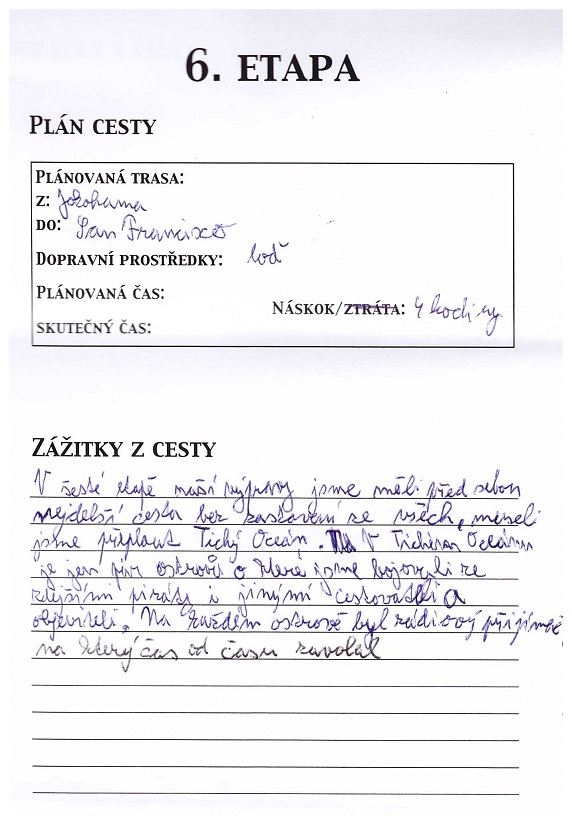 6. ETAPA
PLÁN CESTY
PLÁNOVANÁ TRASA:
Z: Jokohama
DO: San Francisco
DOPRAVNÍ PROSTŘEDKY: loď
PLÁNOVANÁ ČAS:
NÁSKOK/ZTRÁTA: 4 hodiny
SKUTEČNÝ ČAS:
ZÁŽITKY Z CESTY
V šesté etapě naší výpravy jsme měli před sebou
nejdelší cesta bez zastavení ze všech, museli
jsme přeplout Tichý Oceán. Na V Tichém Oceánu
je jen pár ostrovů o které jsme bojovali ze
zdejšími piráty i jinými cestovateli a
objeviteli. Na každém ostrově byl rádiový přijímač
na který čas od času zavolal